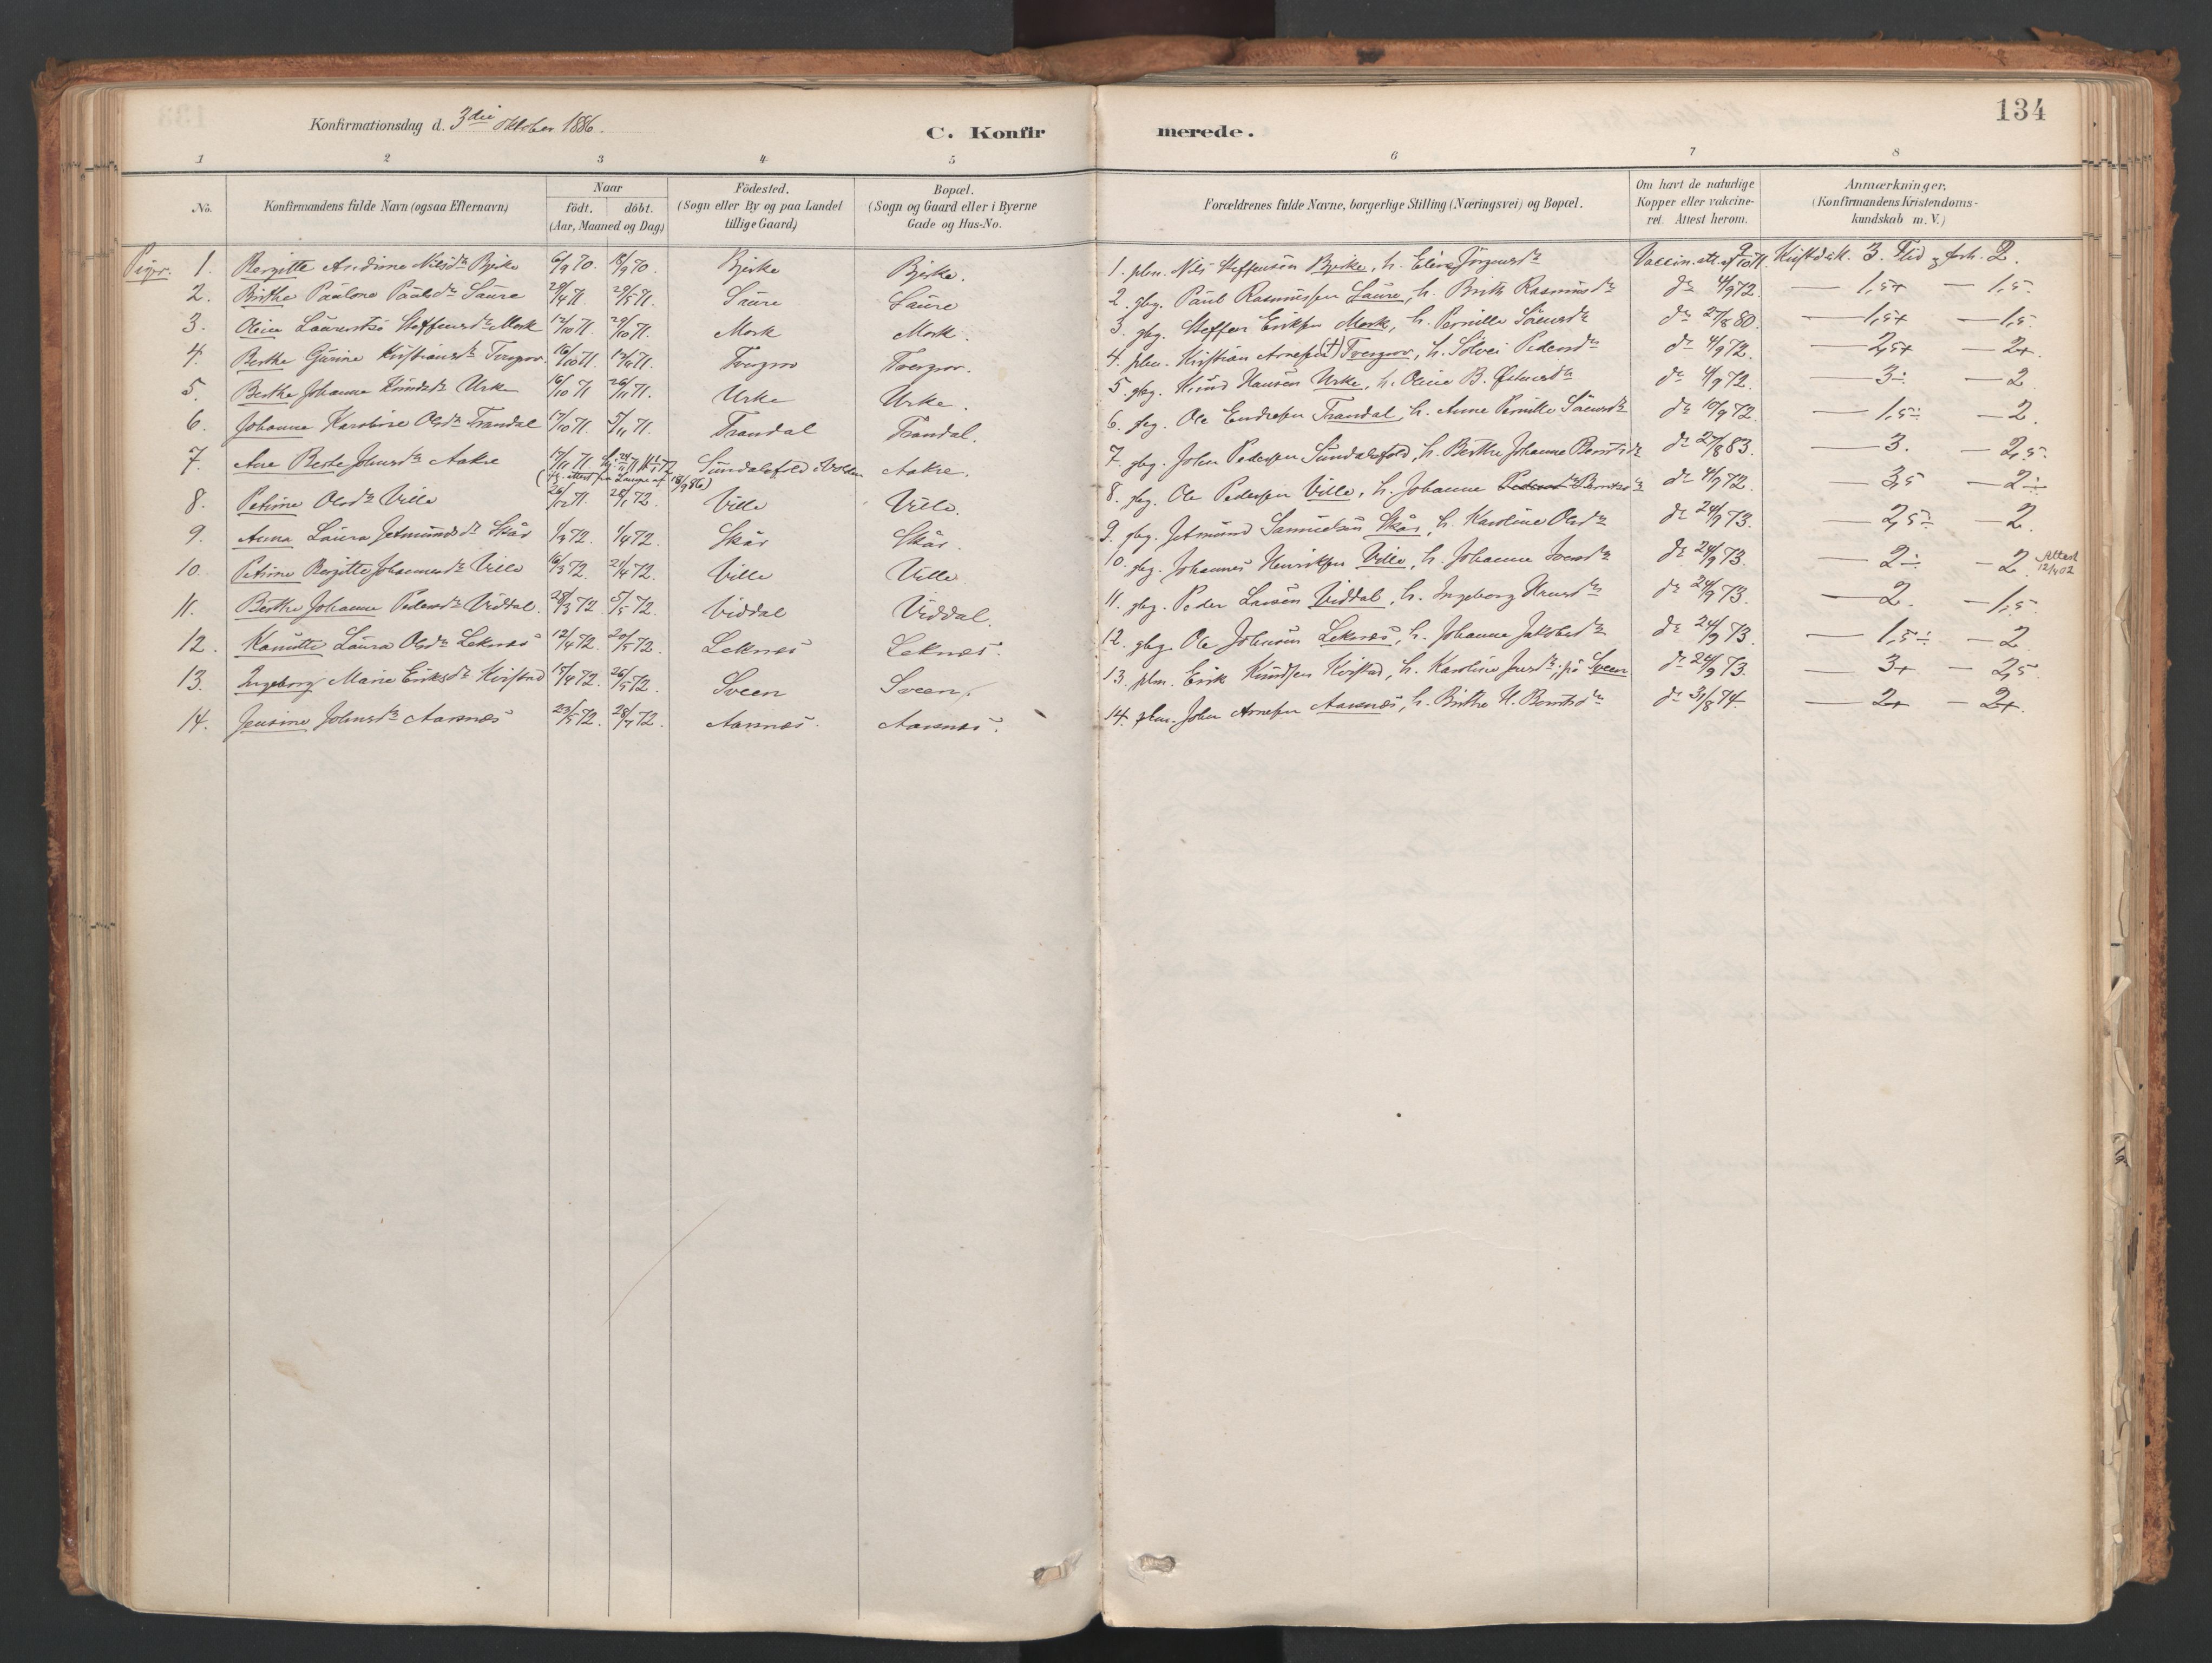 134
Konfirmationsdag d. 3die oktober 1886.
C. Konfir merede.
1 2 3 4 5 6 7 8
No.
Konfirmandens fulde Navn (ogsaa Efternavn)
Naar
födt. döbt.
(Aar, Maaned og Dag)
Födested.
(Sogn eller By og paa Landet
tillige Gaard)
Bopæl.
(Sogn og Gaard eller i Byerne
Gade og Hus-No.
Forældrenes fulde Navne, borgerlige Stilling (Næringsvei) og Bopæl.
Om havt de naturlige
Kopper eller vakcine-
ret. Attest herom.
Anmærkninger,
(Konfirmandens Kristendoms-
kundskab m. V.)
Piger. 1. Bergitte Nilsdr Bjerke 6/9 70. 18/9 70. Bjerke Bjerke. 1. plm. Nils Steffensen Bjerke, h. Jörgensdr Vaccin. att. af Kristdsk. 3. Flid og forh. 2.
2. Birthe Paulone Paulsdr Saure 29/4 71. 29/5 71. Saure Saure 2. gbg. Paul Rasmussen Saure, h. Brith Rasmusdr do 4/9 72. — 1,5+ — 1,5.
3. Oline Steffensdr Mork 12/10 71. 29/10 71. Mork Mork. 3. gbg. Steffen Eriksen Mork, h. Pernille do 27/8 80. — 1,5+ — 1,5.
4. Berthe Gurine Kristiansdr Tvergrov 16/10 71. Tvergrov Tvergrov. 4. plm. Kristian Arnesen (†) Tvergrov, h. Sölvei Pedersdr do 4/9 72. — 2,5+ — 2+.
5. Berthe Johanne Knudsdr Urke 16/10 71 26/11 71. Urke Urke. 5 gbg. Knud Hansen Urke, h. Oline B. do 4/9 72. — 3÷ — 2
6. Johanne Karoline Olsdr Trandal 17/10 71. 5/11 71. Trandal Trandal. 6. Ole Endresen Trandal, h. Anne Pernille do 10/9 72. — 1,5÷ — 2.
7. Ane Berte Johnsdr Aakre 17/11 71. Sundalsfold i Volden Aakre. 7. gbg. John Pedersen Sundalsfold, h. Berthe Johanne do 27/8 83. — 3. — 2,5.
8. Petrine Olsdr Ville 26/12 71. 28/1 72. Ville Ville. 8. gbg. Ole Pedersen Ville, h. Johanne do 4/9 72. — 3,5 — 2÷
9. Anna Laura Jetmundsdr Skår 1/3 72. 1/4 72. Skår Skår. 9. gbg. Jetmund Samuelsen Skår, h. Karoline Olsdr do 24/9 73. — 2,5÷ 2.
10. Petrine Bergitte Johannesdr Ville 16/3 72. 21/4 72. Ville Ville 10. gbg. Johannes Henriksen Ville, h. Johanne Iversdr do 24/9 73. — 2÷ — 2. Attest 12/4 02
11. Berthe Johanne Pedersdr Viddal. 28/3 72. 5/5 72. Viddal Viddal. 11. gbg. Peder Larsen Viddal, h. Ingeborg do 24/9 73. — 2. — 1,5
12. Laura Olsdr Leknes 12/4 72. 20/5 72. Leknes Leknes. 12. gbg. Ole Johnsen Leknes, h. Johanne Jakobsdr do 24/9 73. — 1,5÷ — 2
13. Ingeborg Marie Eriksdr Kirstad 15/4 72. 26/5 72. Sveen Sveen. 13. plm. Erik Knudsen, h. Karoline på Sveen do 24/9 73. — 3+ — 2,5
14. Jensine Johnsdr Aarsnes 23/5 72. 28/7 72. Aarsnes. Aarsnes. 14. plm. John Arnesen Aarsnes, h. Birthe do 31/8 74. — 2+ — 2+.